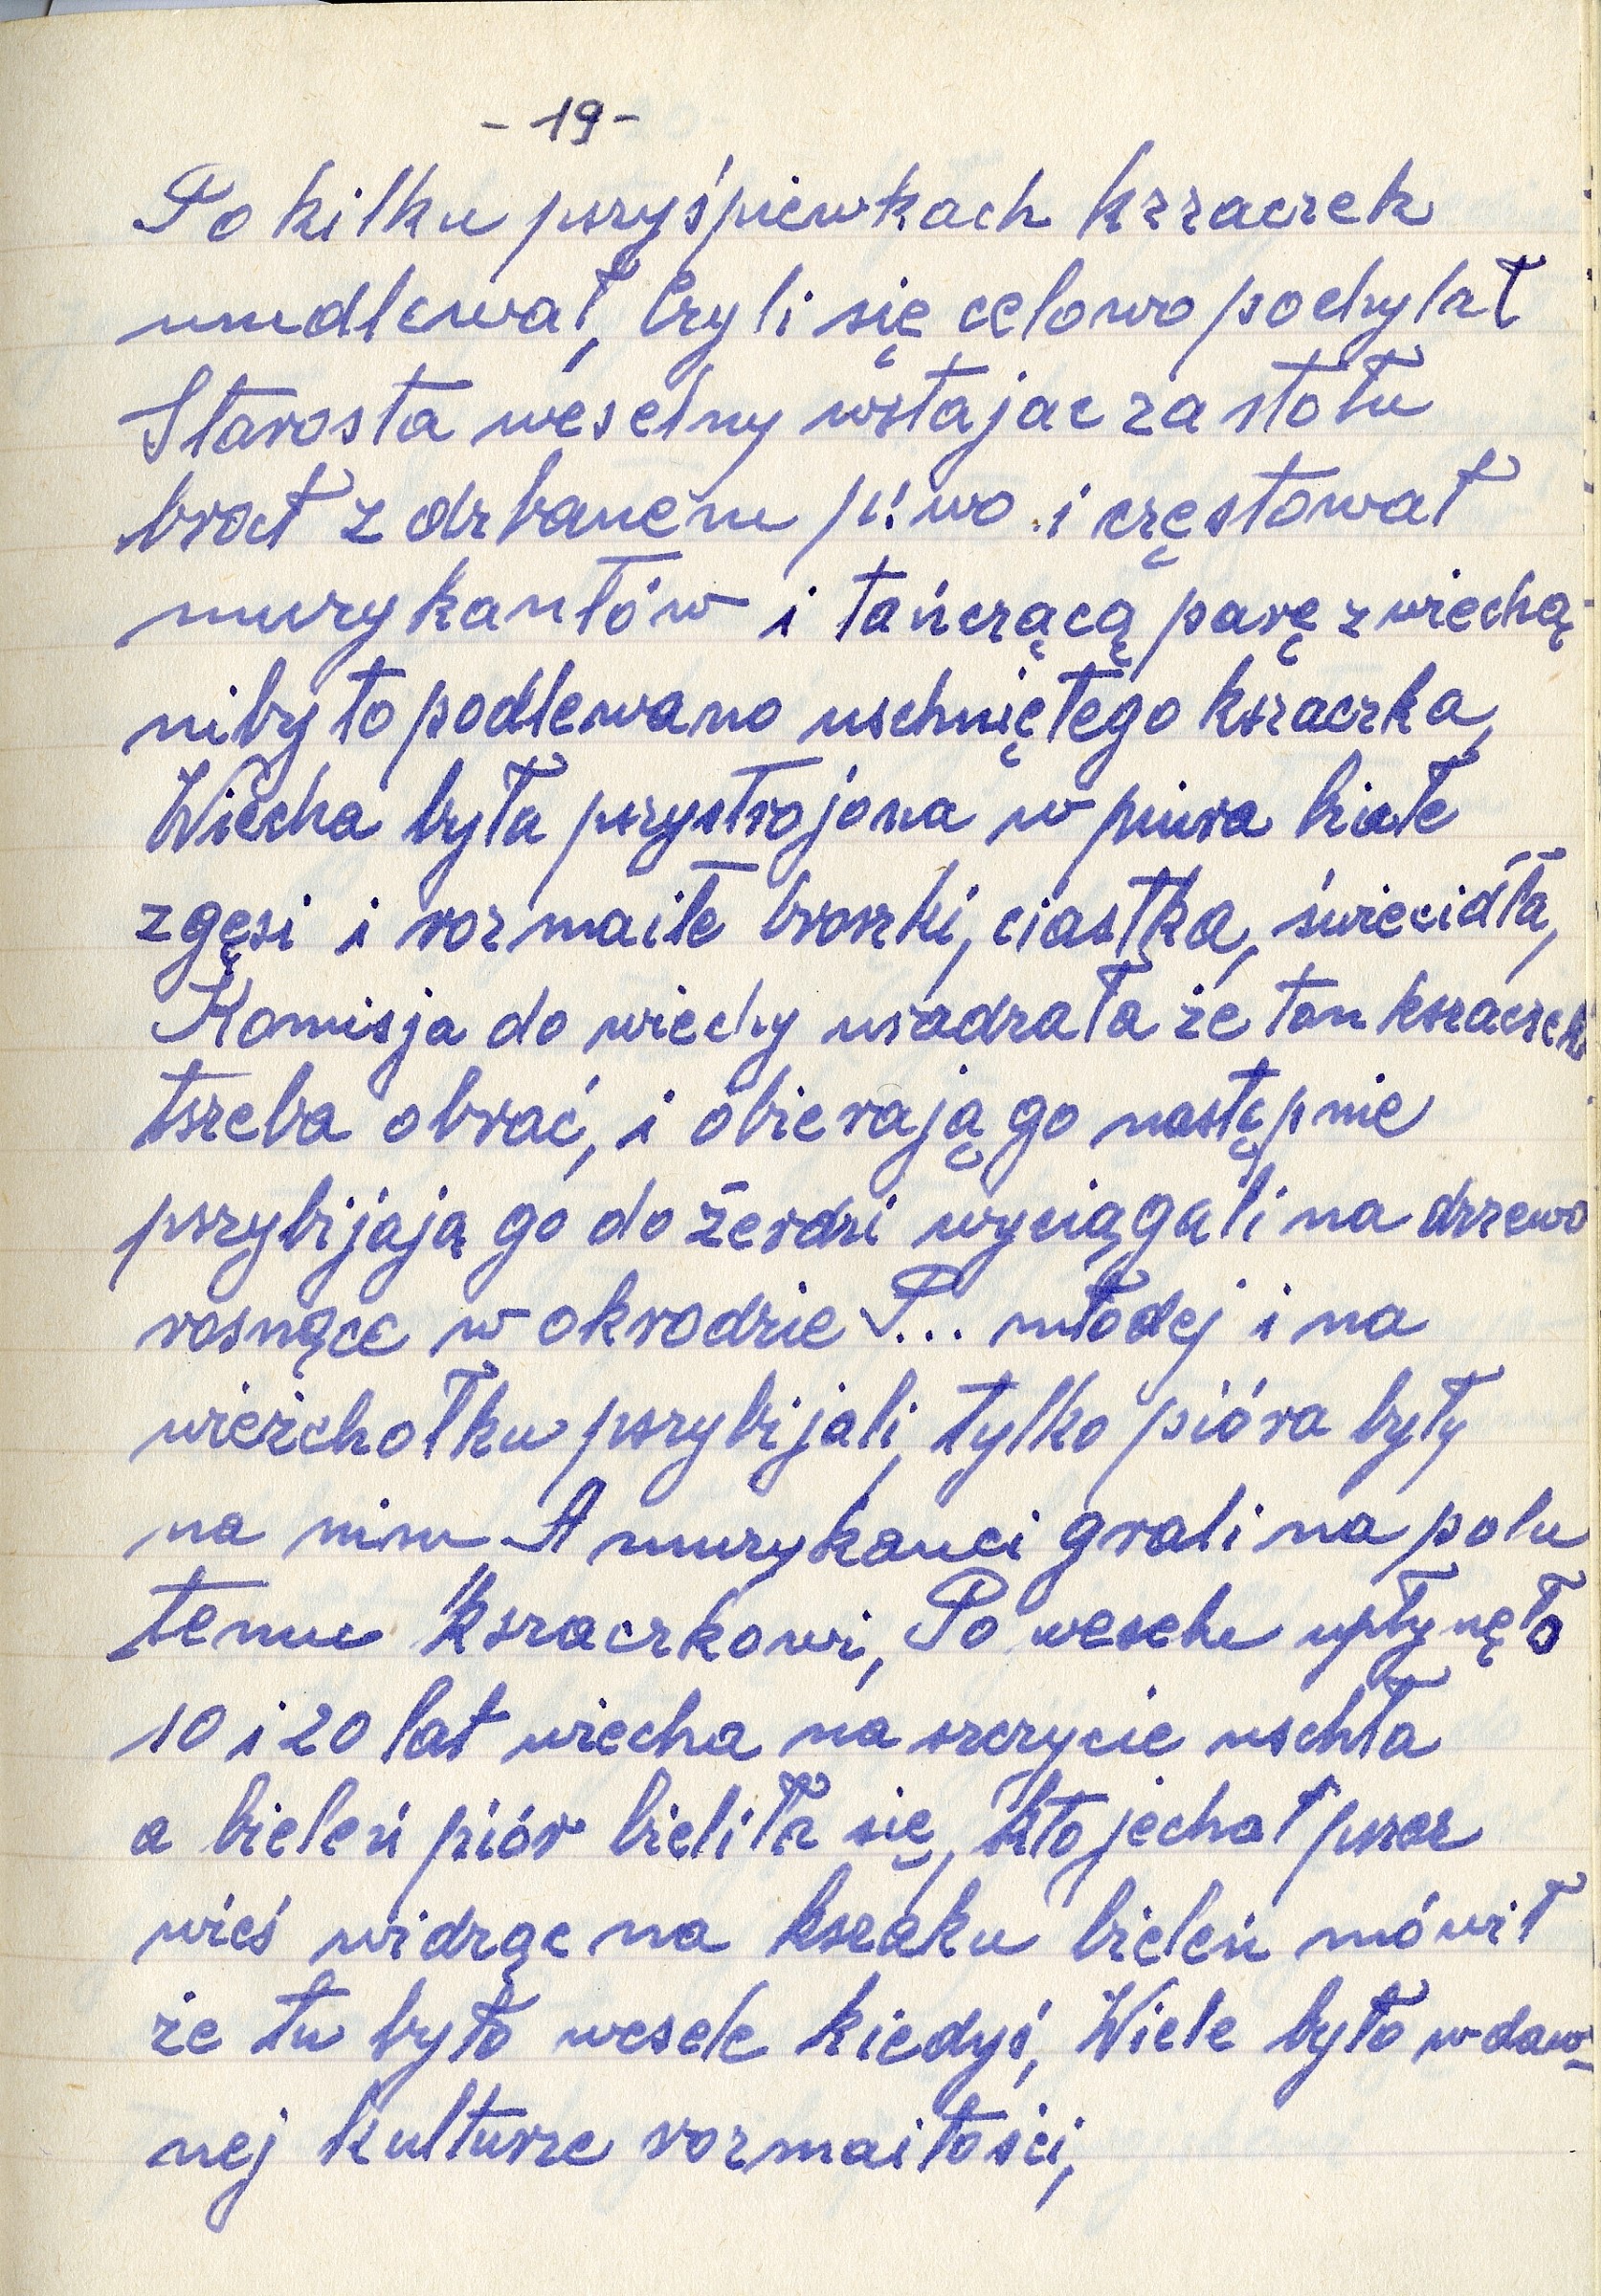 - 19 -
Po kilku pszyśpiewkach krzaczek
umdlewał, Czyli się celowo pochylał
Starosta weselny wstajac za stołu
brał z dzbanem piwo i częstował
muzykantów i tańczącą parę z wiechą
niby to podlewano uschniętego kszaczka,
Wiecha była pszystrojona w piura białe
z gęsi i rozmaite broszki, ciastka, świecidła,
Komisja do wiechy uradzała że ten kszaczek
tszeba obrać, i obierają go następnie
pszybijają go do żerdzi wyciągali na drzewo
rosnące w okrodzie P... młodej i na
wieżchołku pszybijali, tylko pióra były
na nim A muzykanci grali na polu
temu kszaczkowi, Po weselu upłynęło
10 i 20 lat wiecha na szczycie uschła
a bieleń piór bieliła się, kto jechał pszez
wieś widząc na kszaku bieleń mówił
że tu było wesele kiedyś, Wiele było w daw-
nej kulturze rozmaitości,